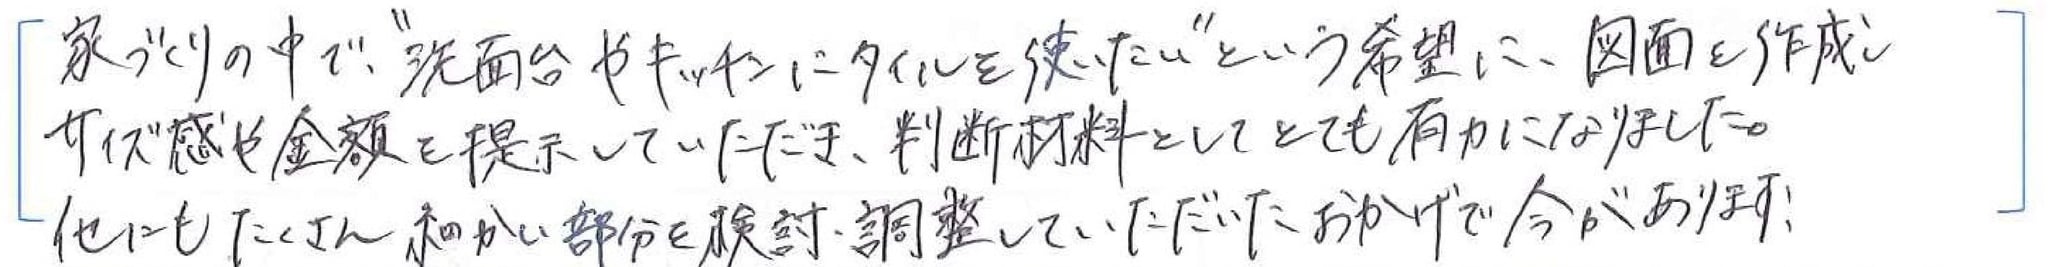 家づくりの中で、"洗面台やキッチンにタイルを使いたい"という希望に、図面を作成し
サイズ感や金額を提示していただき、判断材料としてとても有力になりました。
他にもたくさん細かい部分を検討・調整していただいたおかげで今があります!